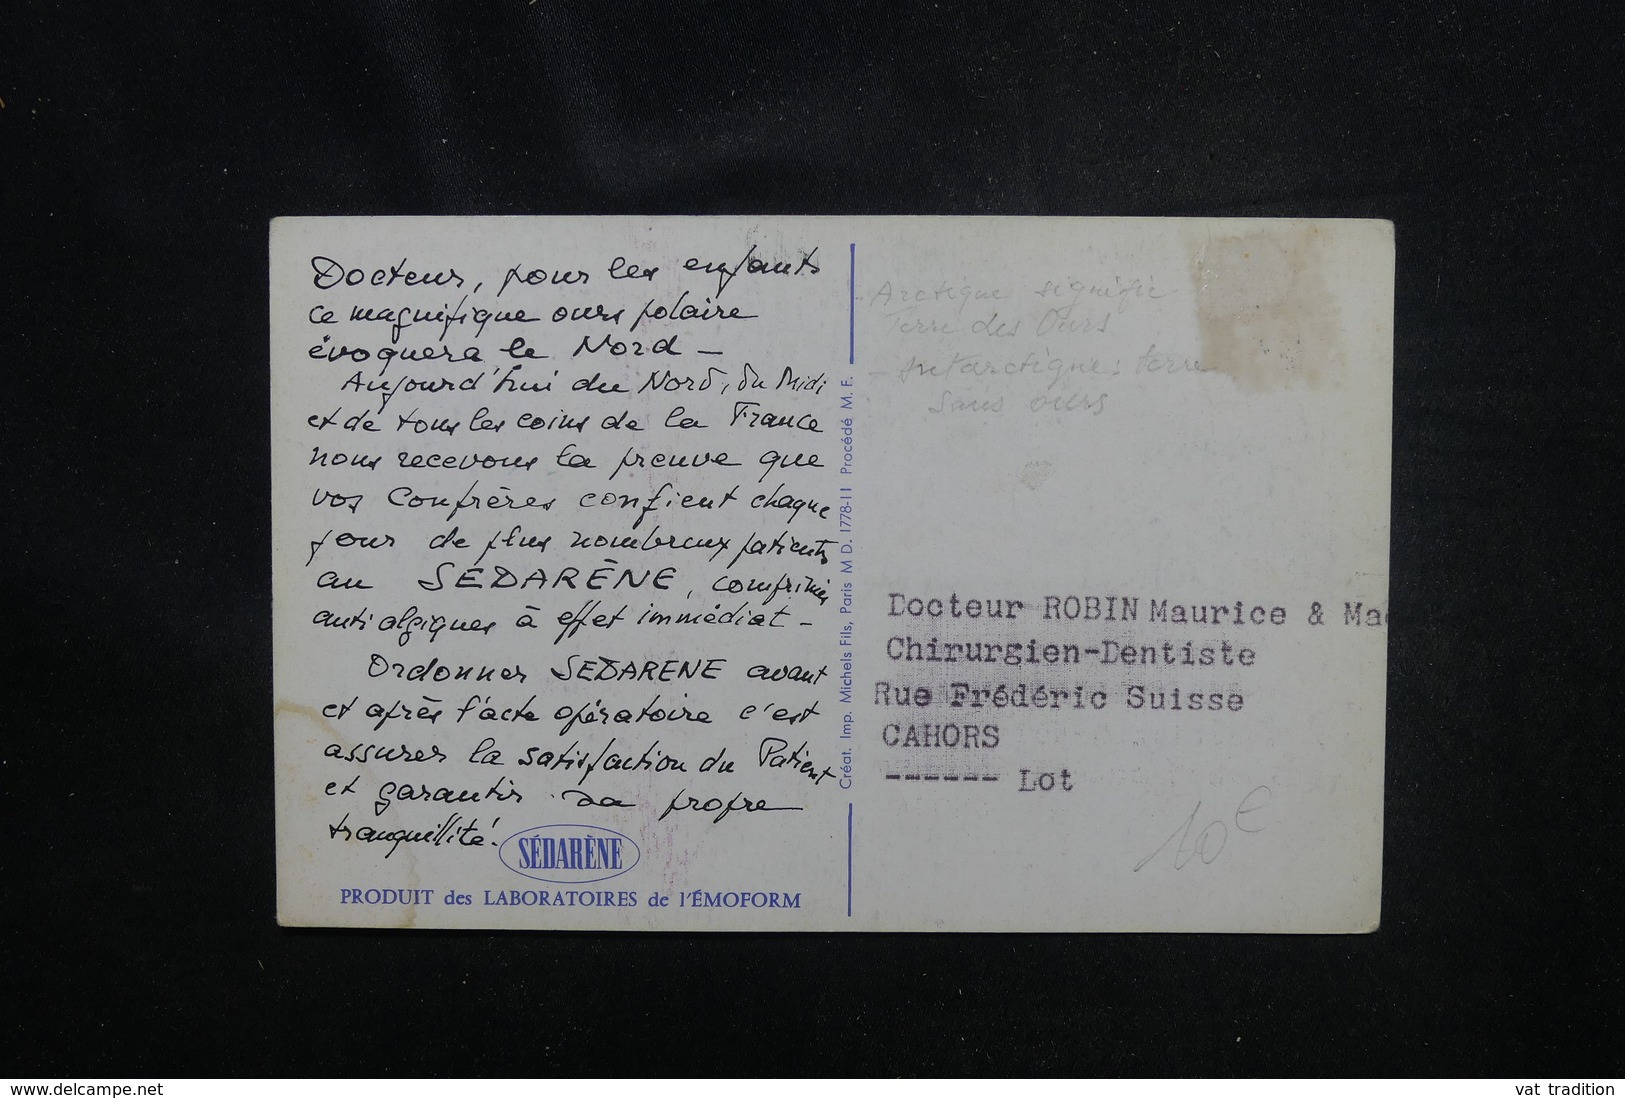 Docteur, pour les enfants
ce magnifique ours polaire
évoquera le Nord –
Aujourd'hui du Nord, du Midi
et de tous les coins de la France
nous recevons la preuve que
vos Confrères confient chaque
jour de plus nombreux patients
au SÉDARÈNE, comprimés
antialgiques à effet immédiat –
Ordonner SEDARENE avant
et après l'acte opératoire c'est
assurer la satisfaction du Patient
et garantir sa propre
tranquillité!
SÉDARÈNE
PRODUIT des LABORATOIRES de l'ÉMOFORM
Créat. Imp. Michels Fils, Paris M D. 1778-11 Procédé M. F.
Arctique signifie
Terre des Ours
– Antarctique : terre
sans ours
Docteur ROBIN Maurice & Mad
Chirurgien-Dentiste
Rue Frédéric Suisse
CAHORS
------ Lot
10 €
www.delcampe.net
vat tradition